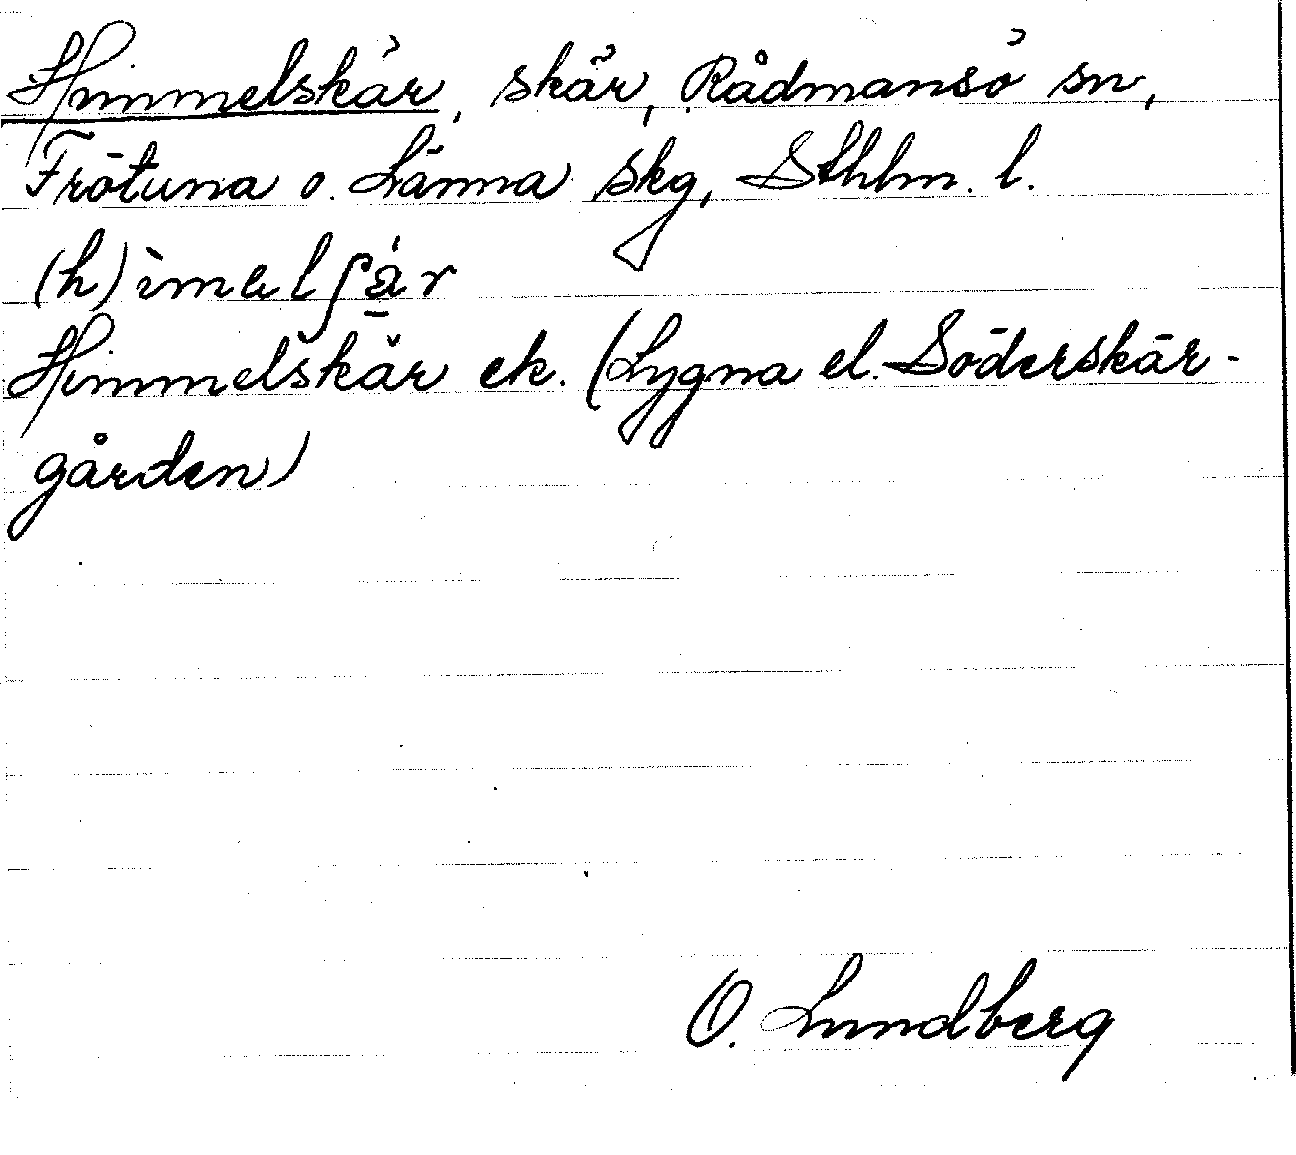 Himmelskär, skär, Rådmansö sn,
Frötuna o. Länna skg, Sthlm. l.
(h)ìməlʃä́r
Himmelskär ek. (Lygna el. Söderskär-
gården)
O. Lundberg